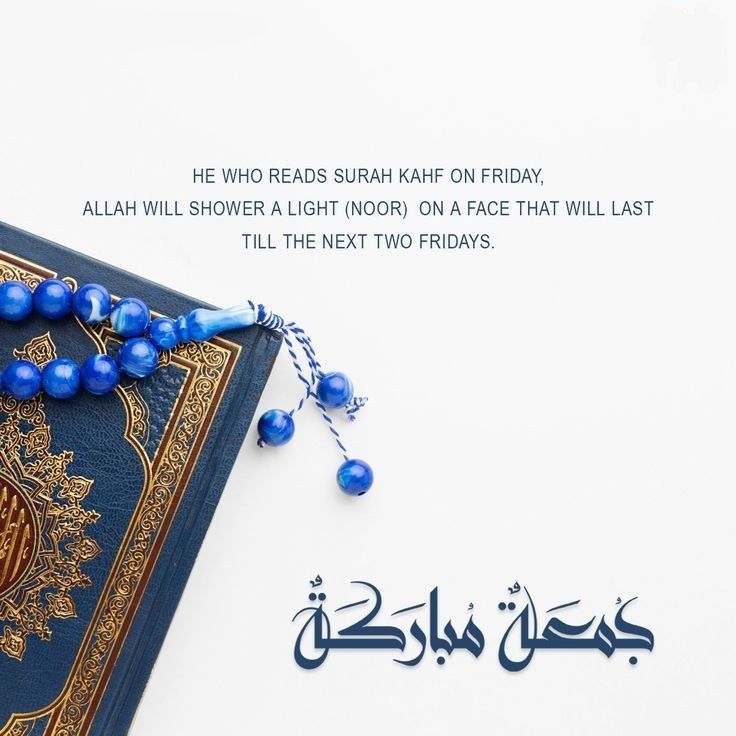 HE WHO READS SURAH KAHF ON FRIDAY,
ALLAH WILL SHOWER A LIGHT (NOOR) ON A FACE THAT WILL LAST
TILL THE NEXT TWO FRIDAYS.
جُمعَةٌ مُبارَكَةٌ